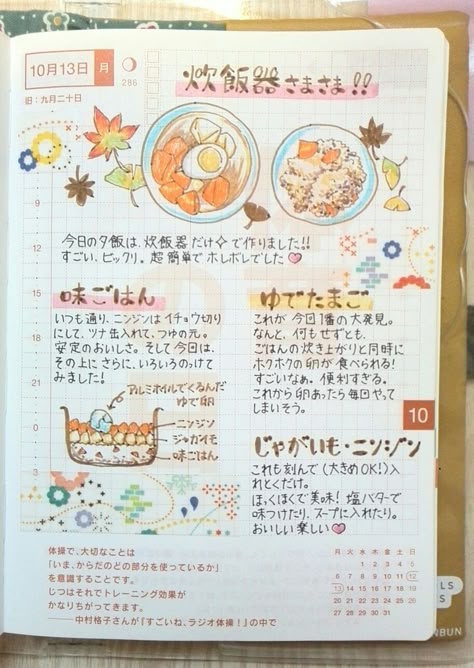 10月13日 月
286
旧:九月二十日
炊飯器さまさま!!
今日の夕飯は、炊飯器だけ✧で作りました!!
すごい、ビックリ。超簡単でホレボレでした♡
味ごはん
いつも通り、ニンジンはイチョウ切り
にして、ツナ缶入れて、つゆの元。
安定のおいしさ。そして今回は、
その上にさらに、いろいろのっけて
みました!
アルミホイルでくるんだ
ゆで卵
ニンジン
ジャガイモ
味ごはん
ゆでたまご
これが今回1番の大発見。
なんと、何もせずとも、
ごはんの炊き上がりと同時に
ホクホクの卵が食べられる!
すごいなぁ。便利すぎる。
これから卵あったら毎回やって
しまいそう。
じゃがいも・ニンジン
これも刻んで(大きめOK!)入
れとくだけ。
ほっくほくで美味!塩バターで
味つけたり、スープに入れたり。
おいしい楽しい♡
9
12
15
18
21
0
3
10
体操で、大切なことは
「いま、からだのどの部分を使っているか」
を意識することです。
じつはそれでトレーニング効果が
かなりちがってきます。
──中村格子さんが『すごいね、ラジオ体操!』の中で
月 火 水 木 金 土 日
1 2 3 4 5
6 7 8 9 10 11 12
13 14 15 16 17 18 19
20 21 22 23 24 25 26
27 28 29 30 31
LS
S
NBUN